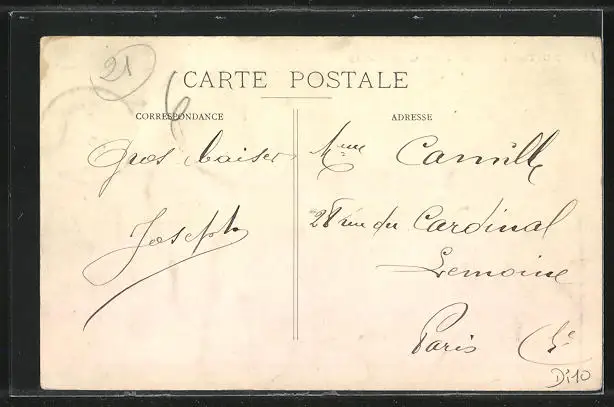 21
6
CARTE POSTALE
CORRESPONDANCE
Gros baisers
Joseph
ADRESSE
Mme Camille
rue du Cardinal
Lemoine
Paris 5e
Di10